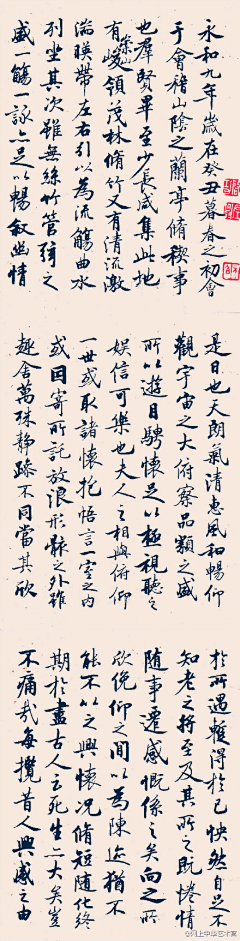 永和九年歲在癸丑暮春之初會
于會稽山陰之蘭亭脩稧事
也羣賢畢至少長咸集此地
有崇山峻領茂林脩竹又有清流激
湍暎帶左右引以為流觴曲水
列坐其次雖無絲竹管弦之
盛一觴一詠亦足以暢敘幽情
是日也天朗氣清惠風和暢仰
觀宇宙之大俯察品類之盛
所以遊目騁懷足以極視聽之
娛信可樂也夫人之相與俯仰
一世或取諸懷抱悟言一室之內
或因寄所託放浪形骸之外雖
趣舍萬殊靜躁不同當其欣
於所遇蹔得於己怏然自足不
知老之將至及其所之既惓情
隨事遷感慨係之矣向之所
欣俛仰之間以為陳迹猶不
能不以之興懷況脩短隨化終
期於盡古人云死生亦大矣豈
不痛哉每攬昔人興感之由